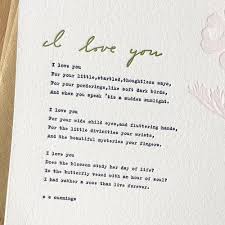 I love you
I love you
For your little, startled, thoughtless ways,
For your ponderings, like soft dark birds,
And when you speak 'tis a sudden sunlight.
I love you
For your wide child eyes, and fluttering hands,
For the little divinities your wrists,
And the beautiful mysteries your fingers.
I love you
Does the blossom study her day of life?
Is the butterfly vexed with an hour of soul?
I had rather a rose than live forever.
e e cummings